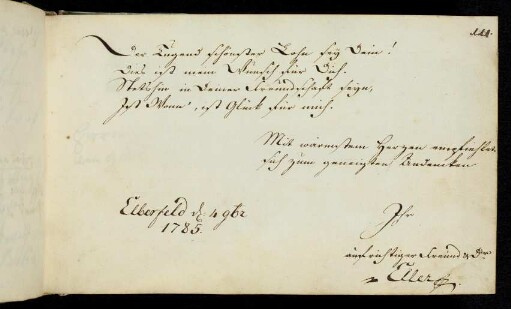 144.
Der Tugend schönster Lohn sey Dein!
Dies ist mein Wunsch für Dich.
Stets hin in Deiner Freundschaft seyn,
Ist Wonn', ist Glück für mich.
Mit wärmstem Herzen empfiehlet
sich zum geneigten Andenken
Elberfeld d. 4 9br
1785.
Ihr
aufrichtiger Freund &
Eller